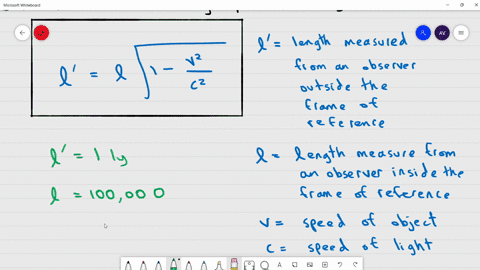 Microsoft Whiteboard
l' = l √1 - v²/c²
l' = length measured
from an observer
outside the
frame of
reference
l' = 1 ly
l = 100,000
l = length measure from
an observer inside the
frame of reference
v = speed of object
c = speed of light
AV